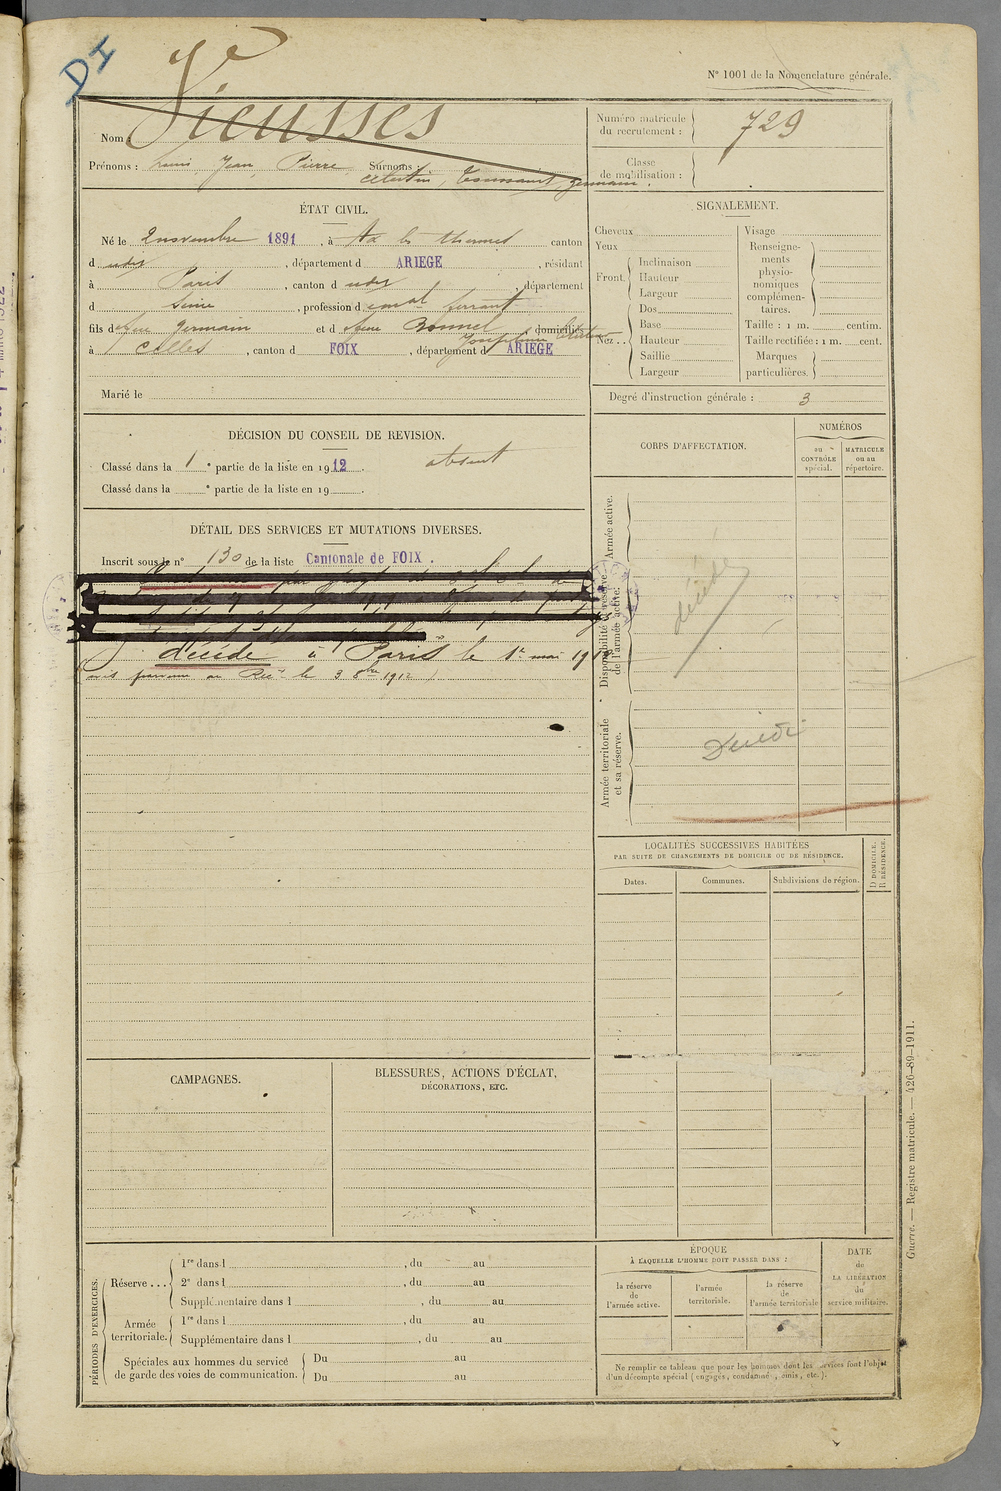 DI
N° 1001 de la Nomenclature générale.
Nom : Vieusses
Prénoms : Louis, Jean, Pierre Surnoms : Célestin, Toussaint, Germain.
Numéro matricule du recrutement : 729
Classe de mobilisation :
ÉTAT CIVIL.
Né le 2 novembre 1891, à Ax les thermes canton
d udit, département d ARIEGE, résidant
à Paris, canton d udit, département
d Seine, profession d
fils d Germain et d Bonnel Joséphine domiciliés
à Celles, canton d FOIX, département d ARIEGE
Marié le
SIGNALEMENT.
Cheveux
Yeux
Front. Inclinaison
Hauteur
Largeur
Nez.. Dos
Base
Hauteur
Saillie
Largeur
Visage
Renseignements physionomiques complémentaires.
Taille : 1 m. centim.
Taille rectifiée : 1 m. cent.
Marques particulières.
Degré d'instruction générale : 3
DÉCISION DU CONSEIL DE REVISION.
Classé dans la 1e partie de la liste en 1912. absent
Classé dans la e partie de la liste en 19 .
DÉTAIL DES SERVICES ET MUTATIONS DIVERSES.
Inscrit sous le n° 130 de la liste Cantonale de FOIX.
décédé à Paris le 1er mai 1912
avis parvenu au Rect le 3 8bre 1912
CORPS D'AFFECTATION.
NUMÉROS
au CONTRÔLE spécial.
MATRICULE ou au répertoire.
Armée active.
Disponibilité et réserve de l'armée active.
décédé
Armée territoriale et sa réserve.
Décédé
LOCALITÉS SUCCESSIVES HABITÉES
PAR SUITE DE CHANGEMENTS DE DOMICILE OU DE RÉSIDENCE.
Dates.
Communes.
Subdivisions de région.
D DOMICILE.
R RÉSIDENCE.
CAMPAGNES.
BLESSURES, ACTIONS D'ÉCLAT,
DÉCORATIONS, ETC.
PÉRIODES D'EXERCICES.
Réserve... 1re dans l , du au
2e dans l , du au
Supplémentaire dans l , du au
Armée territoriale. 1re dans l , du au
Supplémentaire dans l , du au
Spéciales aux hommes du service de garde des voies de communication. Du au
Du au
ÉPOQUE
À LAQUELLE L'HOMME DOIT PASSER DANS :
la réserve de l'armée active.
l'armée territoriale.
la réserve de l'armée territoriale
DATE de LA LIBÉRATION du service militaire.
Ne remplir ce tableau que pour les hommes dont les services font l'objet
d'un décompte spécial (engagés, condamnés, omis, etc.).
Guerre. — Registre matricule. — 426-89-1911.